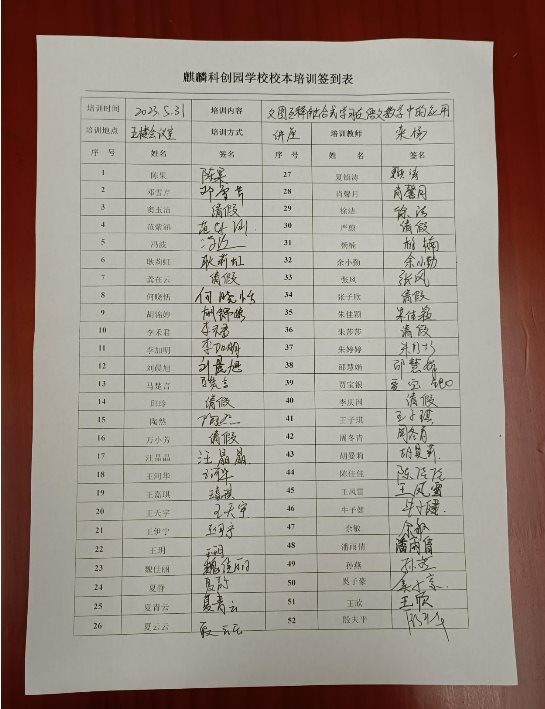 麒麟科创园学校校本培训签到表
培训时间 2023.5.31 培训内容 文图互释融合式学习在语文教学中的应用
培训地点 主楼会议室 培训方式 讲座 培训教师
序 号 姓名 签名 序 号 姓 名 签名
1 陈果 陈果 27 夏镇涛
2 邓雪芹 邓雪芹 28 肖馨月 肖馨月
3 窦玉洁 请假 29 徐洁 徐洁
4 范紫涵 30 严煦 请假
5 冯波 冯波 31 杨楠 杨楠
6 耿莉虹 耿莉虹 32 余小勤 余小勤
7 龚在云 请假 33 张凤 张凤
8 何晓恬 何晓恬 34 张子欣 请假
9 胡锦婷 胡锦婷 35 朱佳颖 朱佳颖
10 李禾君 李禾君 36 朱莎莎 请假
11 李加明 李加明 37 朱婷婷
12 刘晨旭 刘晨旭 38 邵慧娟 邵慧娟
13 马楚言 马楚言 39 贾宝银 贾宝银
14 邱玲 请假 40 李庆国 请假
15 陶然 陶然 41 王子琪 王子琪
16 万小芳 请假 42 周冬青 周冬青
17 汪晶晶 汪晶晶 43 胡曼莉 胡曼莉
18 王河华 王河华 44 陈佳佳 陈佳佳
19 王嘉琪 45 王凤雪 王凤雪
20 王天宇 王天宇 46 牛子健 牛子健
21 王伊宁 王伊宁 47 余敏 余敏
22 王玥 王玥 48 潘雨倩 潘雨倩
23 魏佳丽 魏佳丽 49 孙燕 孙燕
24 夏静 夏静 50 奚子豪
25 夏青云 夏青云 51 王欣 王欣
26 夏云云 夏云云 52 殷大平